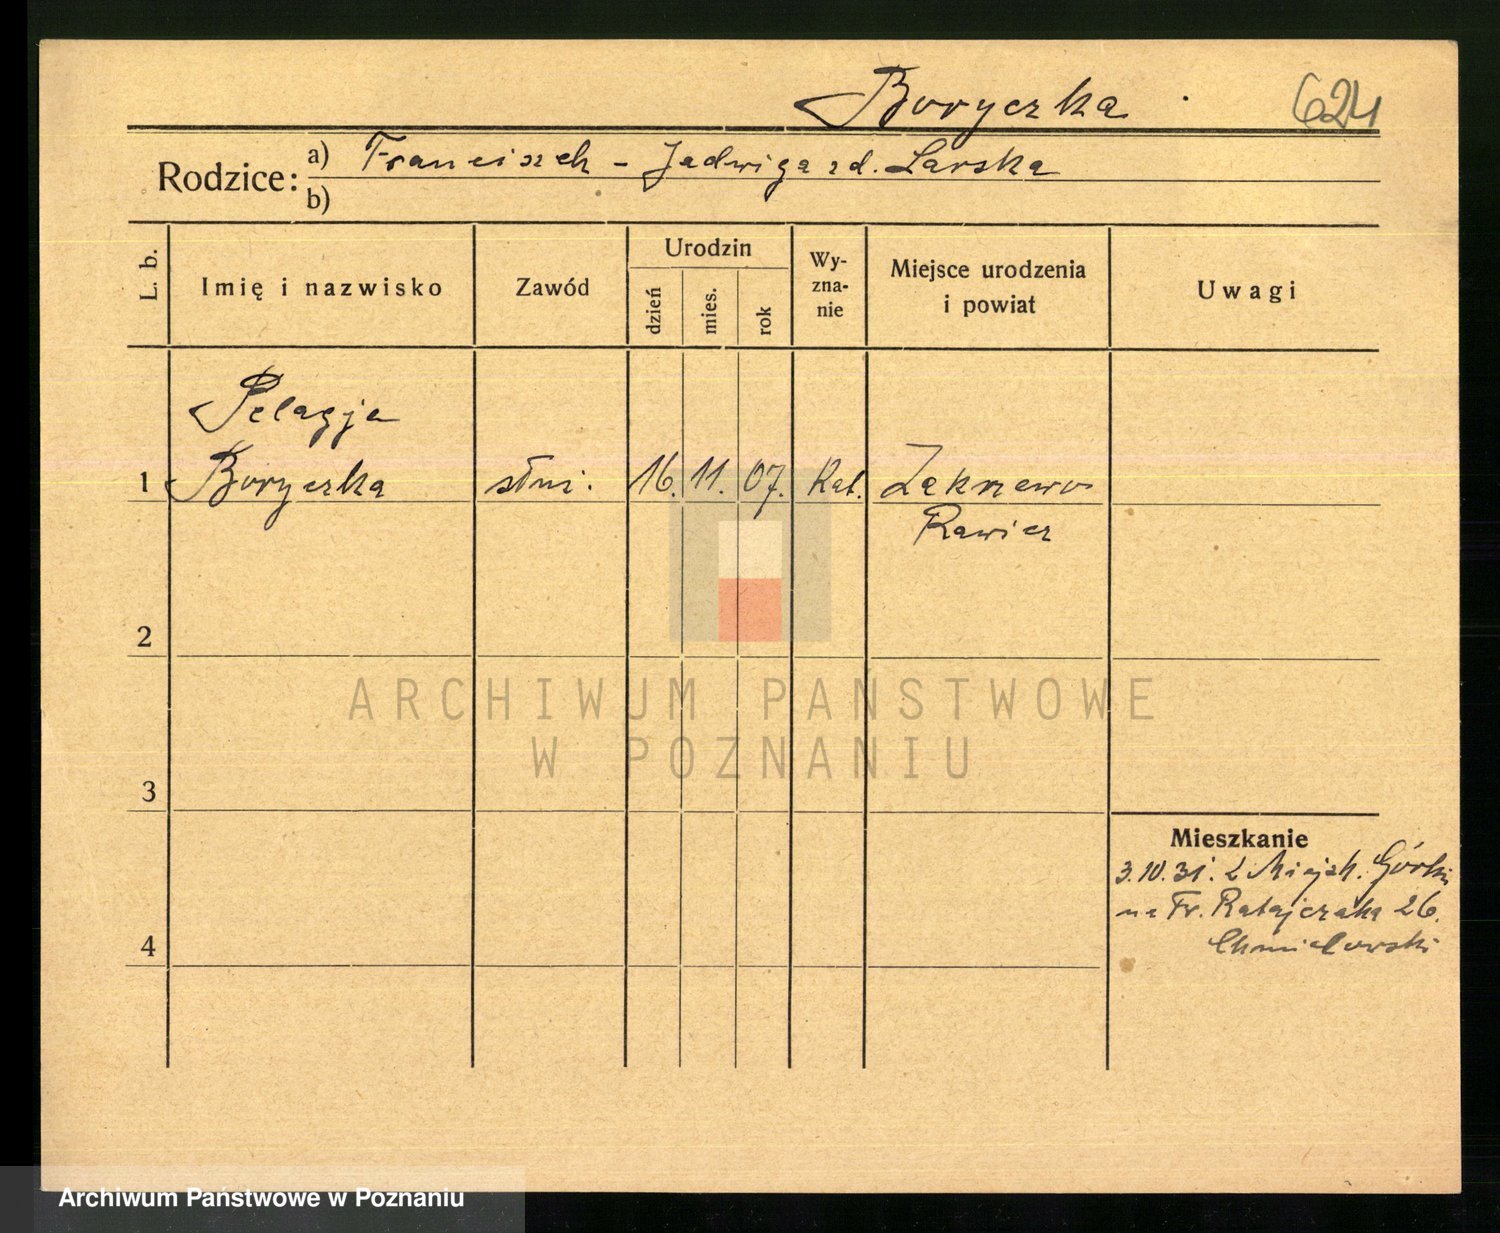 Boryczka. 624
Rodzice: a) Franciszek - Jadwiga zd. Larska
b)
L. b. Imię i nazwisko Zawód Urodzin dzień mies. rok Wy-zna-nie Miejsce urodzenia i powiat Uwagi
Pelagja
1 Boryczka służ. 16. 11. 07. Kat.
Rawicz
2
ARCHIWUM PAŃSTWOWE
W POZNANIU
3
Mieszkanie
3.10.31. z Miejsk. Górki
na Fr. Ratajczaka 26.
4 Chmielewski
Archiwum Państwowe w Poznaniu